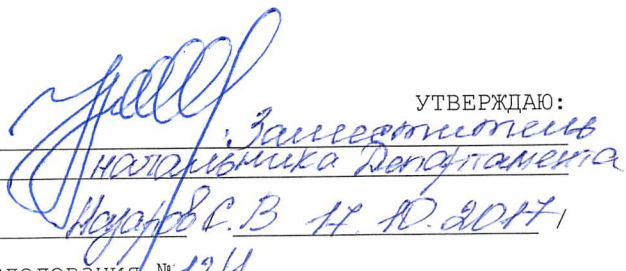 УТВЕРЖДАЮ:
Заместитель
начальника Департамента
Назаров С.В 17.10.2017 /
следования № 124